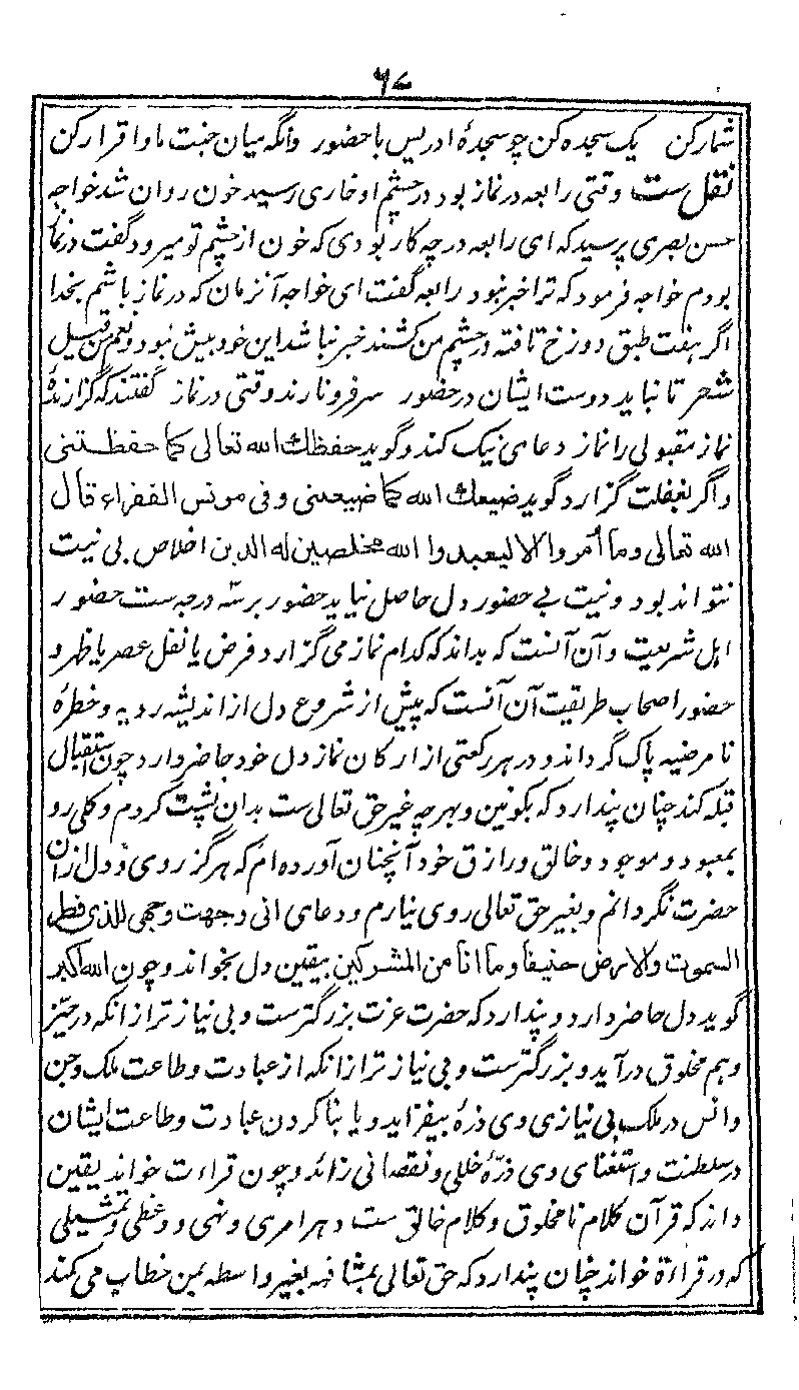 ۶۷
شمار کن یک سجده کن چو سجدهٔ ادریس با حضور وانگه میان جنت ماوا قرار کن
نقل ست وقتی رابعه در نماز بود در چشم او خاری رسید خون روان شد خواجه
حسن بصری پرسید که ای رابعه در چه کار بودی که خون از چشم تو میرود گفت در نماز
بودم خواجه فرمود که ترا خبر نبود رابعه گفت ای خواجه آنزمان که در نماز باشم بخدا
اگر هفت طبق دوزخ تافته در چشم من کشند خبر نباشد این خود بیش نبود ونعم من قیل
شعر تا نباید دوست ایشان در حضور سر فرو نارند وقتی در نماز گفتند که گزارندهٔ
نماز مقبولی را نماز دعای نیک کند و گوید حفظك الله تعالی کما حفظتنی
و اگر بغفلت گزارد گوید ضیعك الله کما ضیعتنی و فی مونس الفقراء قال
الله تعالی وما أمروا الا لیعبدوا الله مخلصین له الدین اخلاص بی نیت
نتواند بود و نیت بے حضور دل حاصل نیاید حضور بر سه درجه ست حضور
اهل شریعت و آن آنست که بداند که کدام نماز می گزارد فرض یا نفل عصر یا ظهر و
حضور اصحاب طریقت آن آنست که پیش از شروع دل از اندیشه ردیه و خطرهٔ
نامرضیه پاک گرداند و در هر رکعتی از ارکان نماز دل خود حاضر دارد چون استقبال
قبله کند چنان پندارد که بکونین و هر چه غیر حق تعالی ست بدان پشت کردم و کلی رو
بمعبود و موجود و خالق و رازق خود آنچنان آورده ام که هرگز روی و دل ازان
حضرت نگردانم و بغیر حق تعالی روی نیارم و دعای انی وجهت وجهی للذی فطر
السموت والارض حنیفا وما انا من المشرکین بیقین دل بخواند و چون الله اکبر
گوید دل حاضر دارد و پندارد که حضرت عزت بزرگترست و بی نیازتر ازانکه در حیّز
وهم مخلوق درآید و بزرگترست و بی نیازتر ازانکه از عبادت و طاعت ملک و جن
و انس در ملک بی نیازی وی ذرهٔ بیفزاید و یا بناکردن عبادت و طاعت ایشان
در سلطنت و استغنای وی ذرّهٔ خللی و نقصانی زائد و چون قراءت خواند یقین
داند که قرآن کلام نا مخلوق و کلام خالق ست و هر امری و نهی و وعظی و تمثیلی
که در قراءة خواند چنان پندارد که حق تعالی بمشافهه بغیر واسطه بمن خطاب می کند